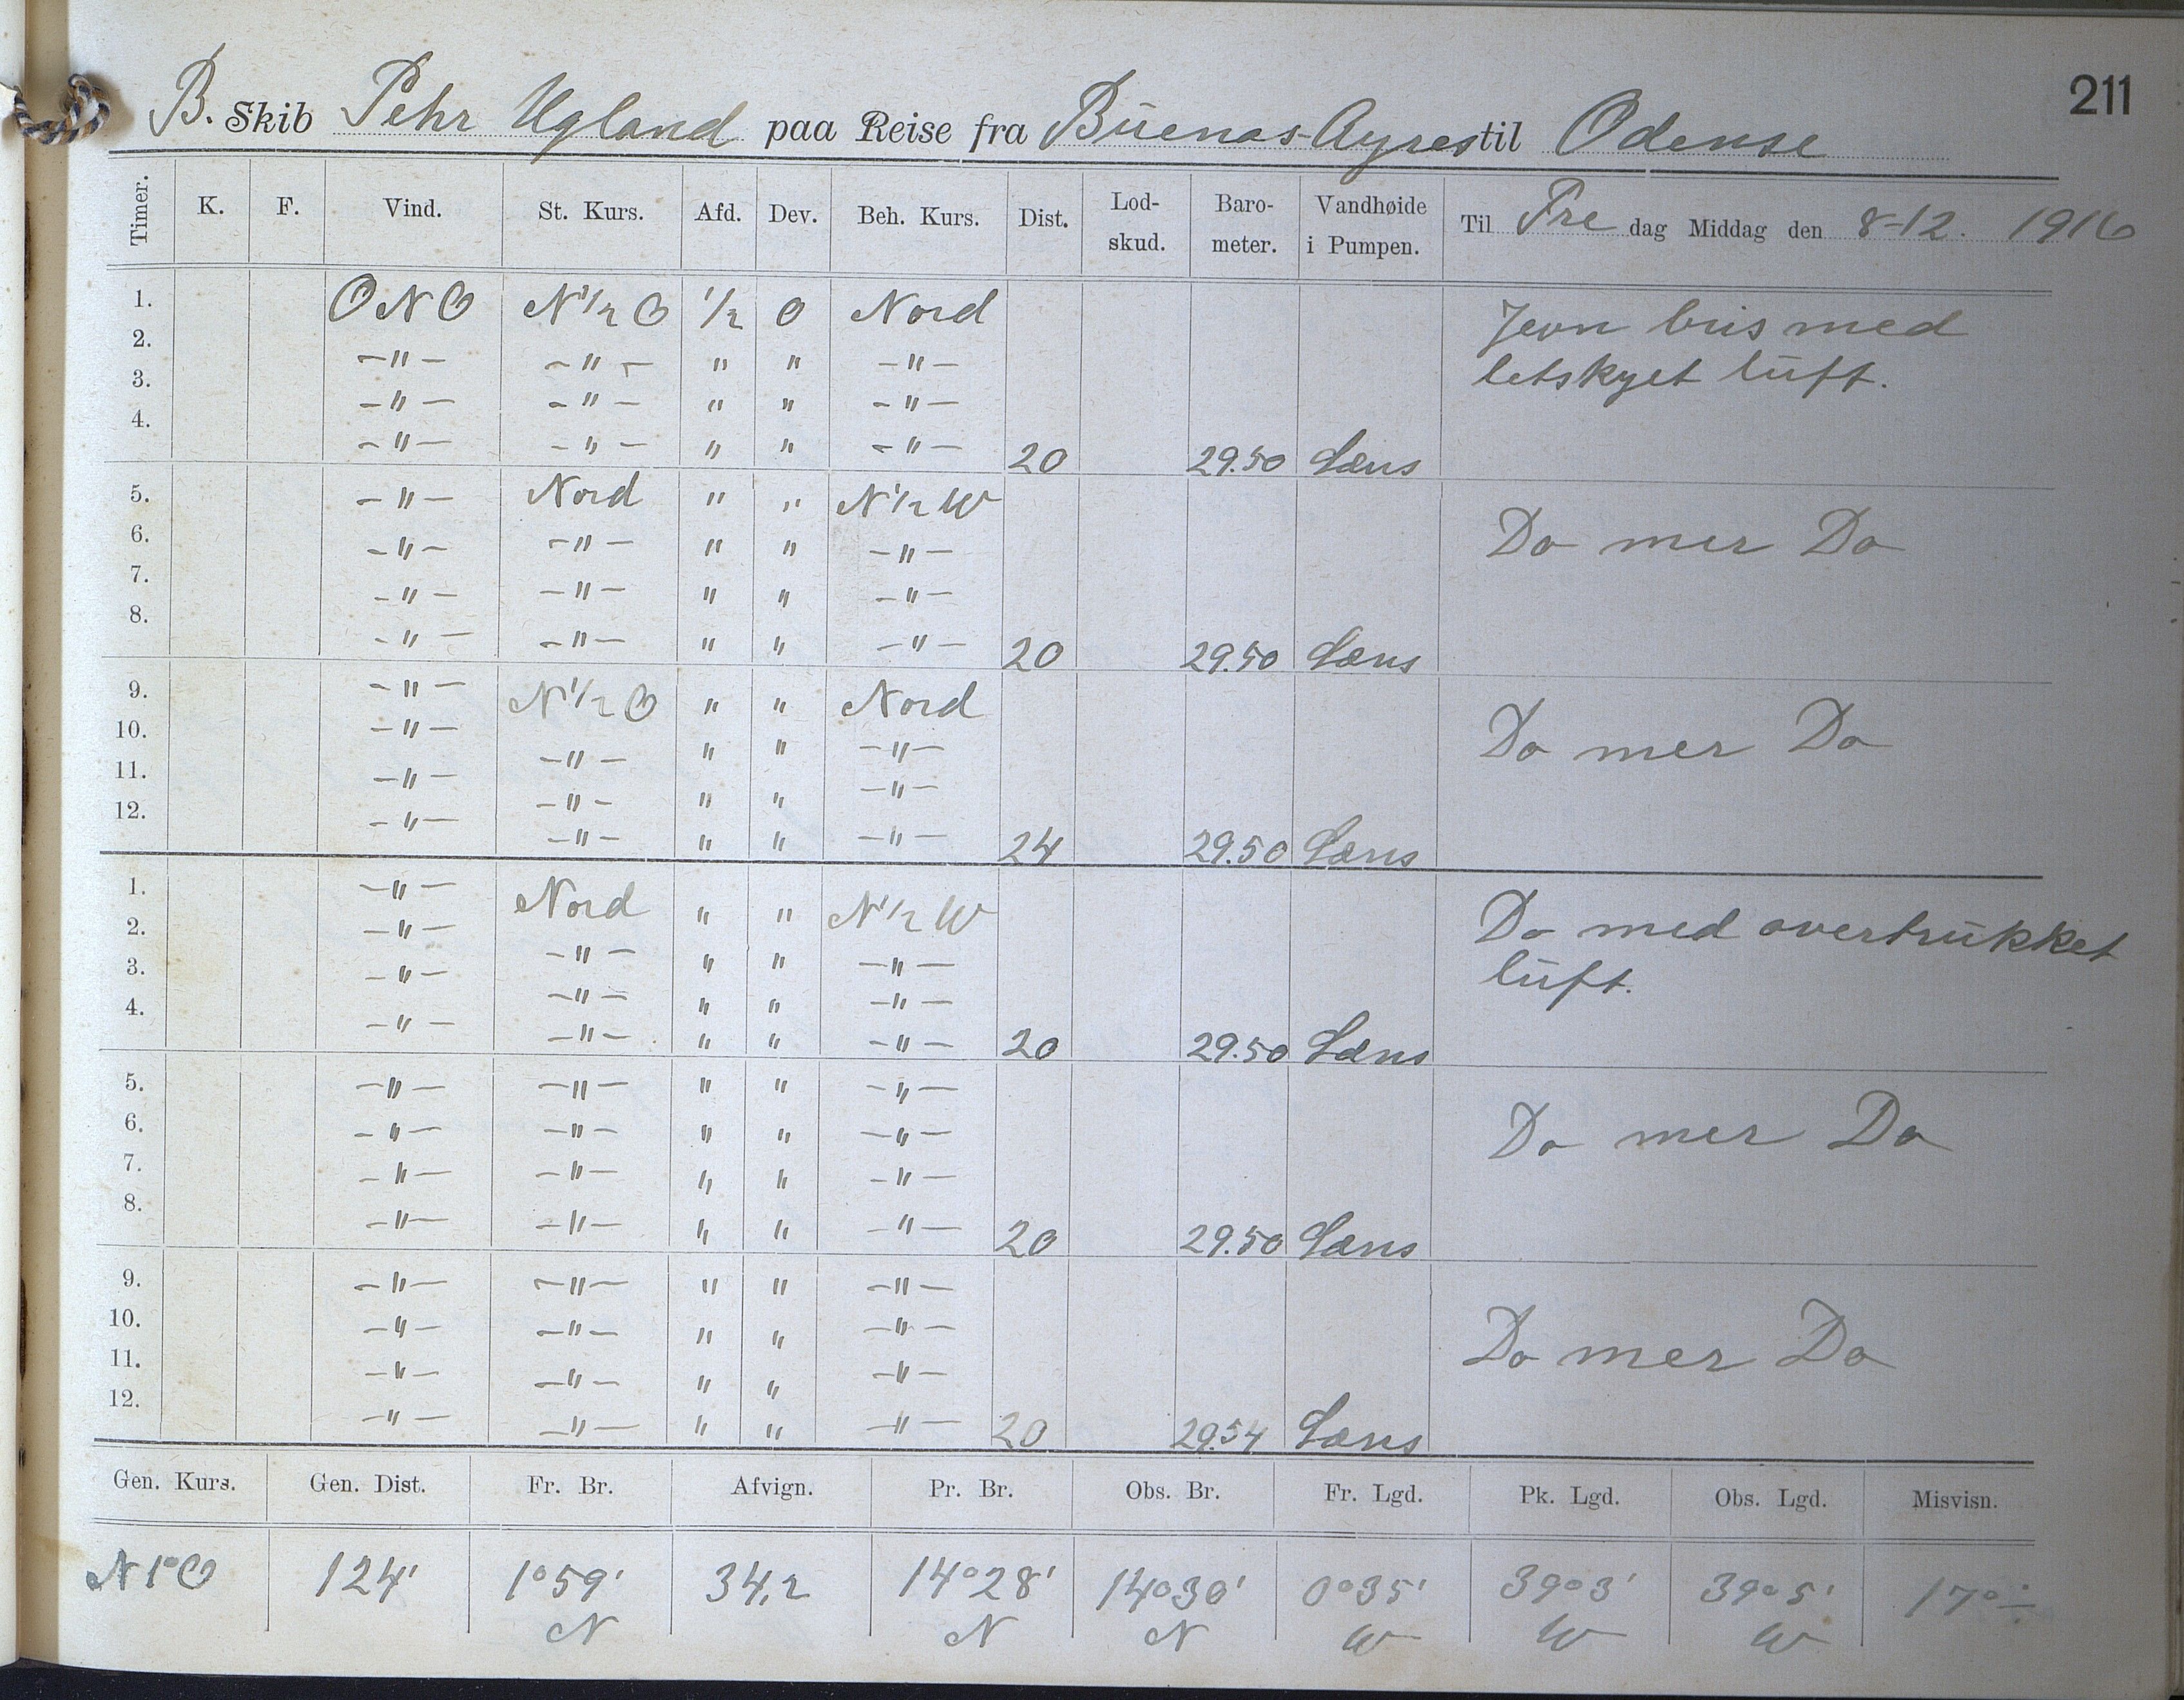 211
B. Skib Pehr Ugland paa Reise fra Buenos-Ayres til Odense
Timer. K. F. Vind. St. Kurs. Afd. Dev. Beh. Kurs. Dist. Lod-skud. Baro-meter. Vandhøide i Pumpen. Til Fre dag Middag den 8-12. 1916
1. ONO N½O ½ 0 Nord Jevn bris med
2. -"- -"- " " -"- letskyet luft.
3. -"- -"- " " -"-
4. -"- -"- " " -"- 20 29.50 Læns
5. -"- Nord " " N½W Do mer Do
6. -"- -"- " " -"-
7. -"- -"- " " -"-
8. -"- -"- " " -"- 20 29.50 Læns
9. -"- N½O " " Nord Do mer Do
10. -"- -"- " " -"-
11. -"- -"- " " -"-
12. -"- -"- " " -"- 24 29.50 Læns
1. -"- Nord " " N½W Do med overtrukket
2. -"- -"- " " -"- luft.
3. -"- -"- " " -"-
4. -"- -"- " " -"- 20 29.50 Læns
5. -"- -"- " " -"- Do mer Do
6. -"- -"- " " -"-
7. -"- -"- " " -"-
8. -"- -"- " " -"- 20 29.50 Læns
9. -"- -"- " " -"- Do mer Do
10. -"- -"- " " -"-
11. -"- -"- " " -"-
12. -"- -"- " " -"- 20 29.54 Læns
Gen. Kurs. Gen. Dist. Fr. Br. Afvign. Pr. Br. Obs. Br. Fr. Lgd. Pk. Lgd. Obs. Lgd. Misvisn.
N1°O 124' 1°59' 34,2 14°28' 14°30' 0°35' 39°3' 39°5' 17°÷
N N N W W W